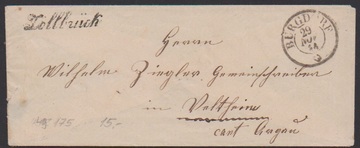 Zollbrück
BERGDORF
29
NOV
54
Herrn
Wilhelm Ziegler, Gemeinschreiber
in Veltheim
cant Aargau
175 15,-